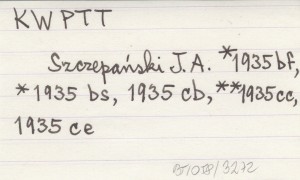 KWPTT
Szczepański J.A. *1935 bf,
*1935 bs, 1935 cb, **1935 cc,
1935 ce